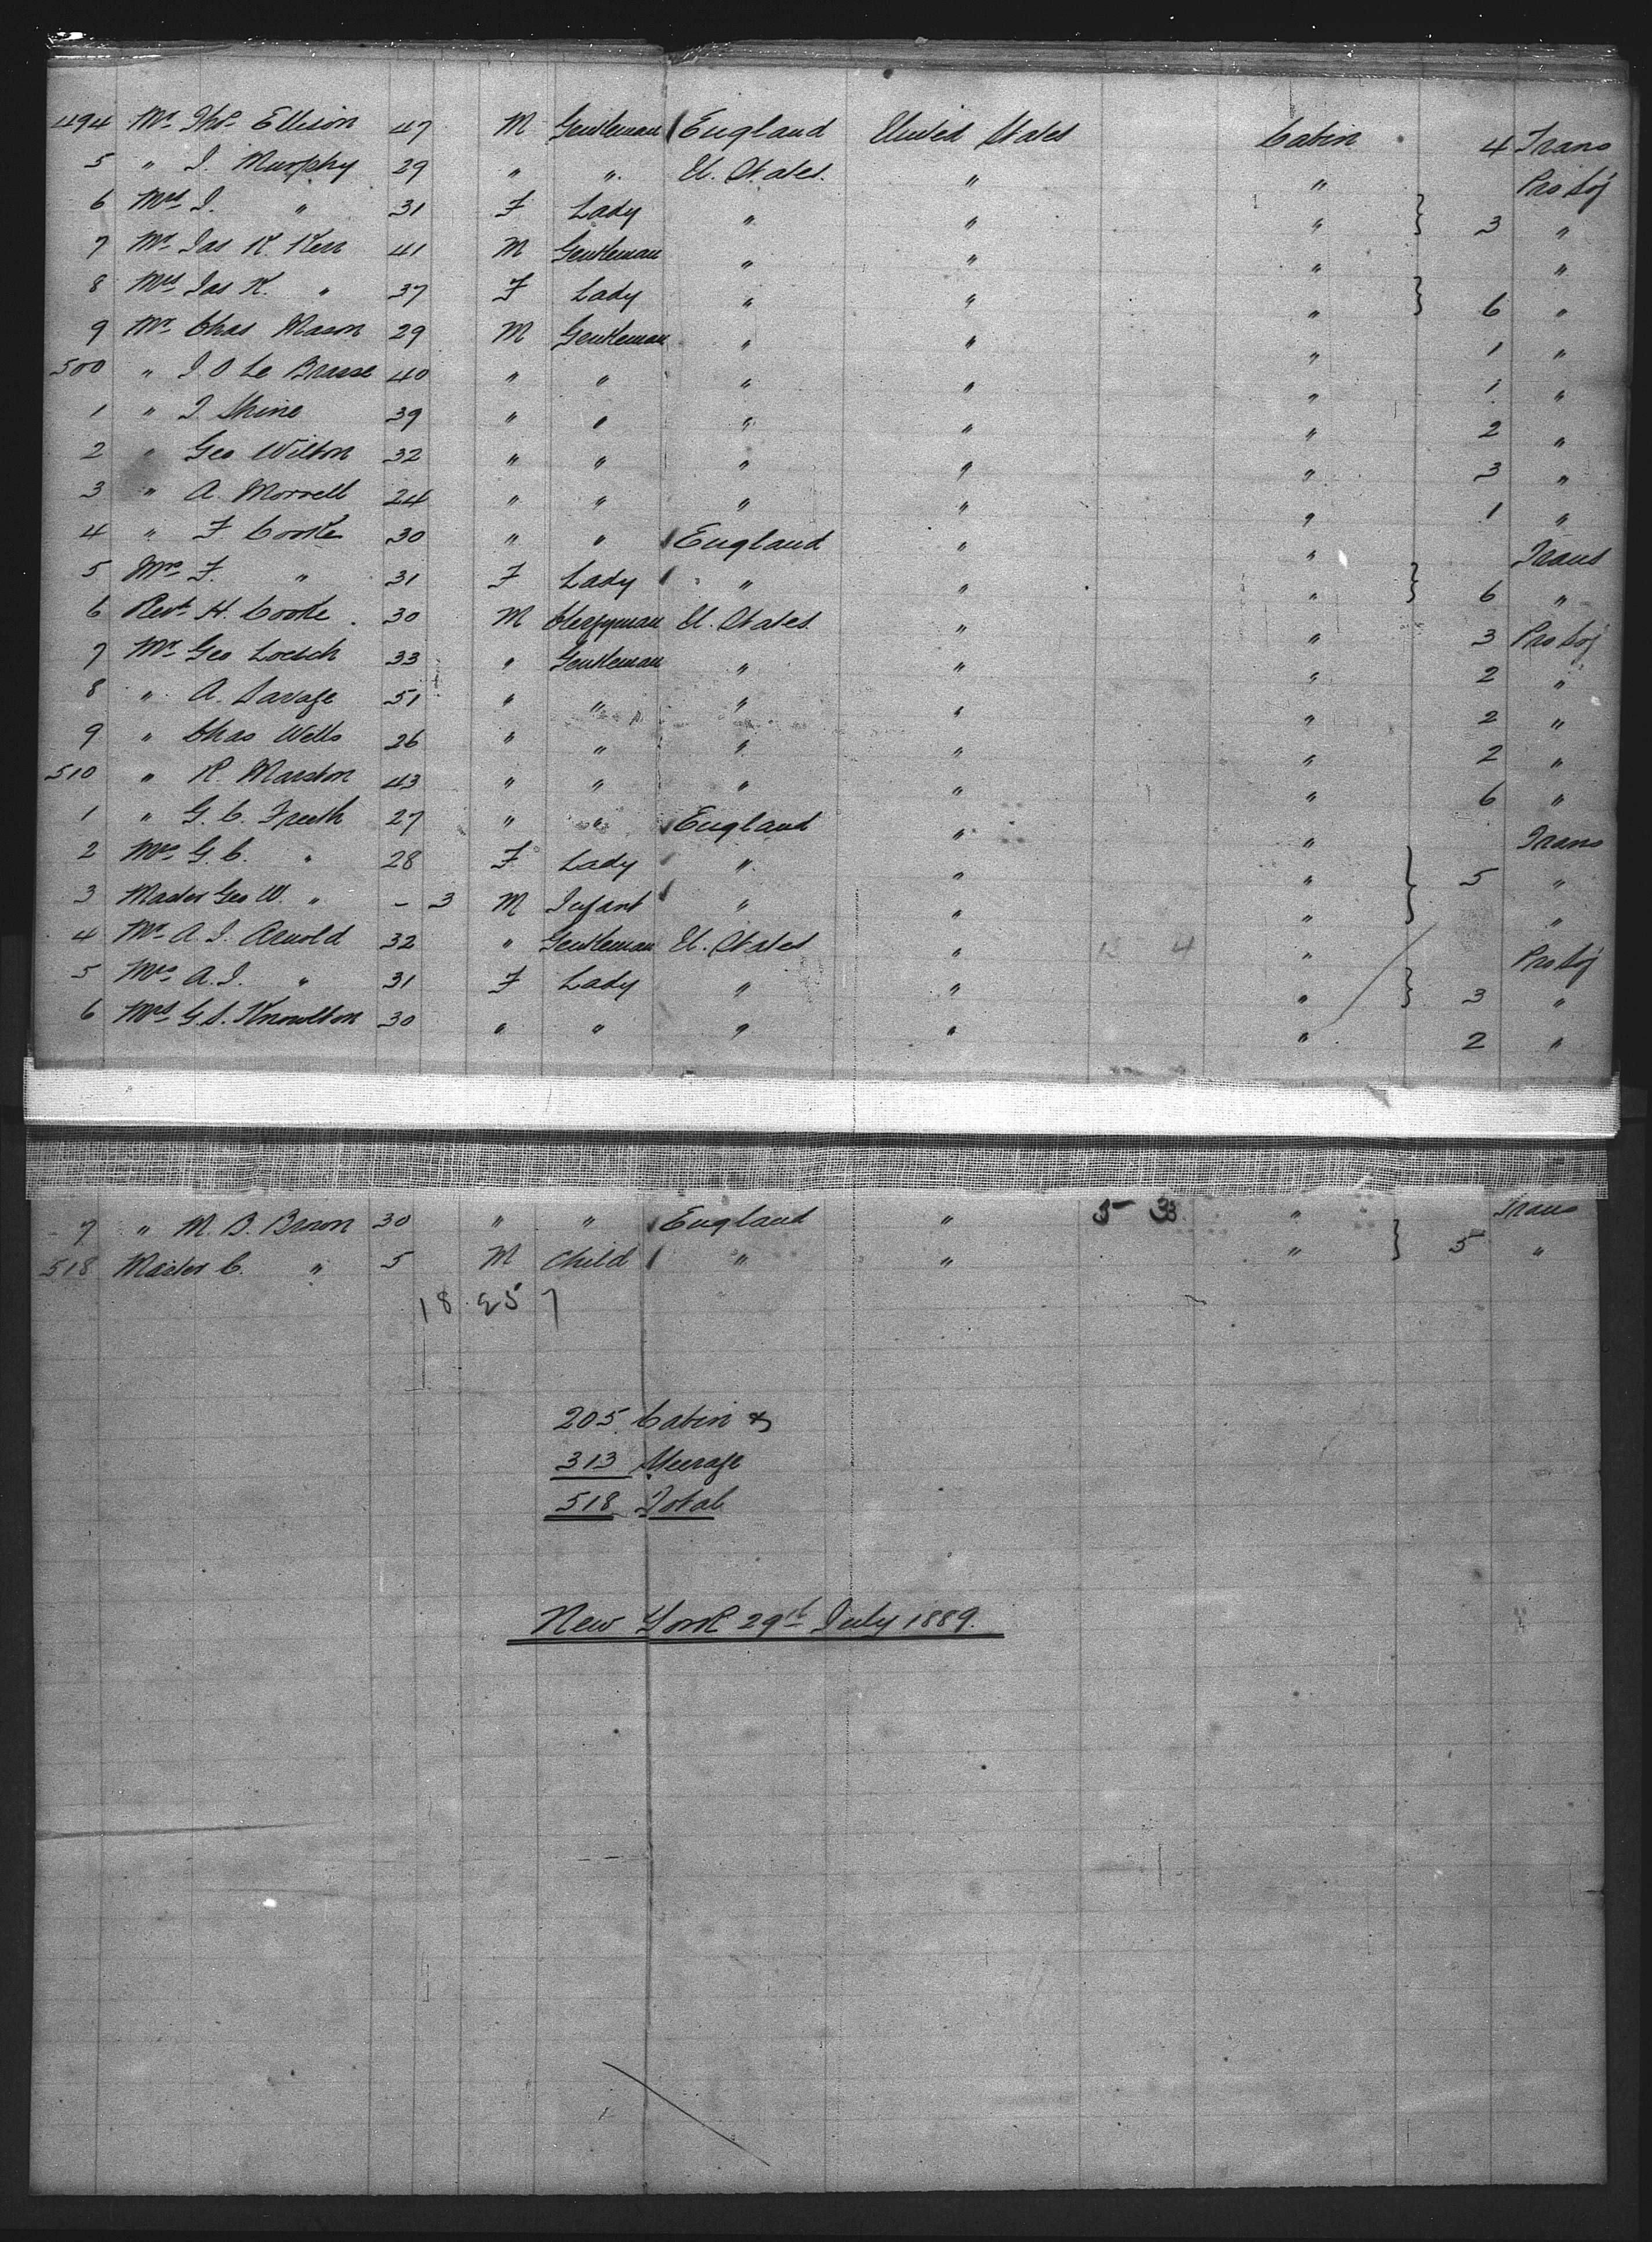 494 Mr Thos Ellison 47 M Gentleman England United States Cabin 4 Trans
5 " J. Murphy 29 " " U. States " " Pro Soj
6 Mrs J. " 31 F Lady " " " } 3 "
7 Mr Jas K. Kerr 41 M Gentleman " " " "
8 Mrs Jas K. " 37 F Lady " " " } 6 "
9 Mr Chas Mason 29 M Gentleman " " " 1 "
500 " J. O Le Brasse 40 " " " " " 1 "
1 " J. Shine 39 " " " " " 2 "
2 " Geo Wilton 32 " " " " " 3 "
3 " A. Morrell 24 " " " " " 1 "
4 " F Cooke 30 " " England " " Trans
5 Mrs F. " 31 F Lady " " " } 6 "
6 Revd H. Cooke 30 M Clergyman U. States " " 3 Pro Soj
7 Mr Geo Loesch 33 " Gentleman " " " 2 "
8 " A. Savage 51 " " " " " 2 "
9 " Chas Wells 26 " " " " " 2 "
510 " R. Marston 43 " " " " " 6 "
1 " G. C. Freeth 27 " " England " " Trans
2 Mrs G. C. " 28 F Lady " " " } 5 "
3 Master Geo W. " - 3 M Infant " " " "
4 Mr A. J. Arnold 32 " Gentleman U. States " 12 4 " Pro Soj
5 Mrs A. J. " 31 F Lady " " " } 3 "
6 Mrs G. S. Knowlton 30 " " " " " 2 "
7 " M. B. Brown 30 " " England " 5 - 33 " Trans
518 Master C. " 5 M Child " " " } 5 "
18 25 7
205 Cabin &
313 Steerage
518 Total
New York 29th July 1889.